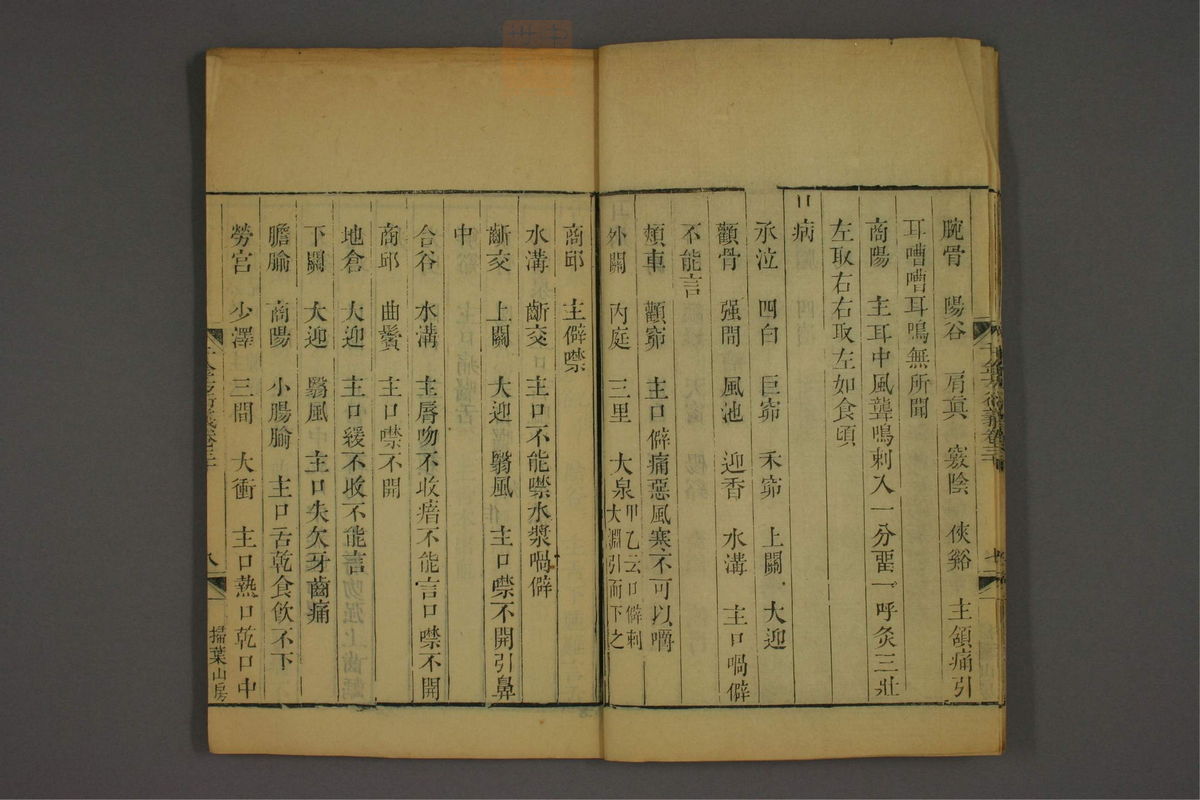 腕骨　陽谷　肩真　竅陰　俠谿　主頷痛引
耳嘈嘈耳鳴無所聞
商陽　主耳中風聾鳴刺入一分畱一呼灸三壯
左取右右取左如食頃
口病
承泣　四白　巨窌　禾窌　上關　大迎
顴骨　强間　風池　迎香　水溝　主口喎僻
不能言
頰車　顴窌　主口僻痛惡風寒不可以嚼
外關　内庭　三里　大泉甲乙云口僻刺
大淵引而下之
商邱　主僻噤
水溝　齗交　主口不能噤水漿喎僻
齗交　上關　大迎　翳風　主口噤不開引鼻
中
合谷　水溝　主唇吻不收瘖不能言口噤不開
商邱　曲鬢　主口噤不開
地倉　大迎　主口緩不收不能言
下關　大迎　翳風　主口失欠牙齒痛
膽腧　商陽　小腸腧　主口舌乾食飲不下
勞宮　少澤　三間　大衝　主口熱口乾口中
千金方衍義卷三十
八
掃葉山房